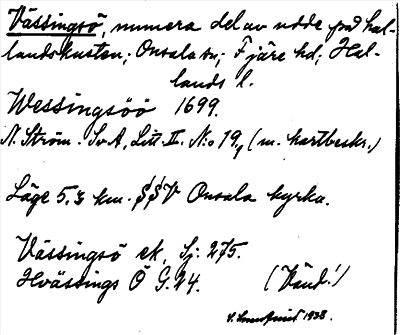 Vässingsö, numera del av udde på hal-
landskusten; Onsala sn; Fjäre hd; Hal-
lands l.
Wessingsöö 1699.
N. Ström. Sv. A, Litt. II. N:o 19, (m. kartbeskr.)
Läge 5.3 km. SSV Onsala kyrka.
Vässingsö ek, Sj: 275.
Hvässings Ö G. 24. (Vänd!)
S. 1938.